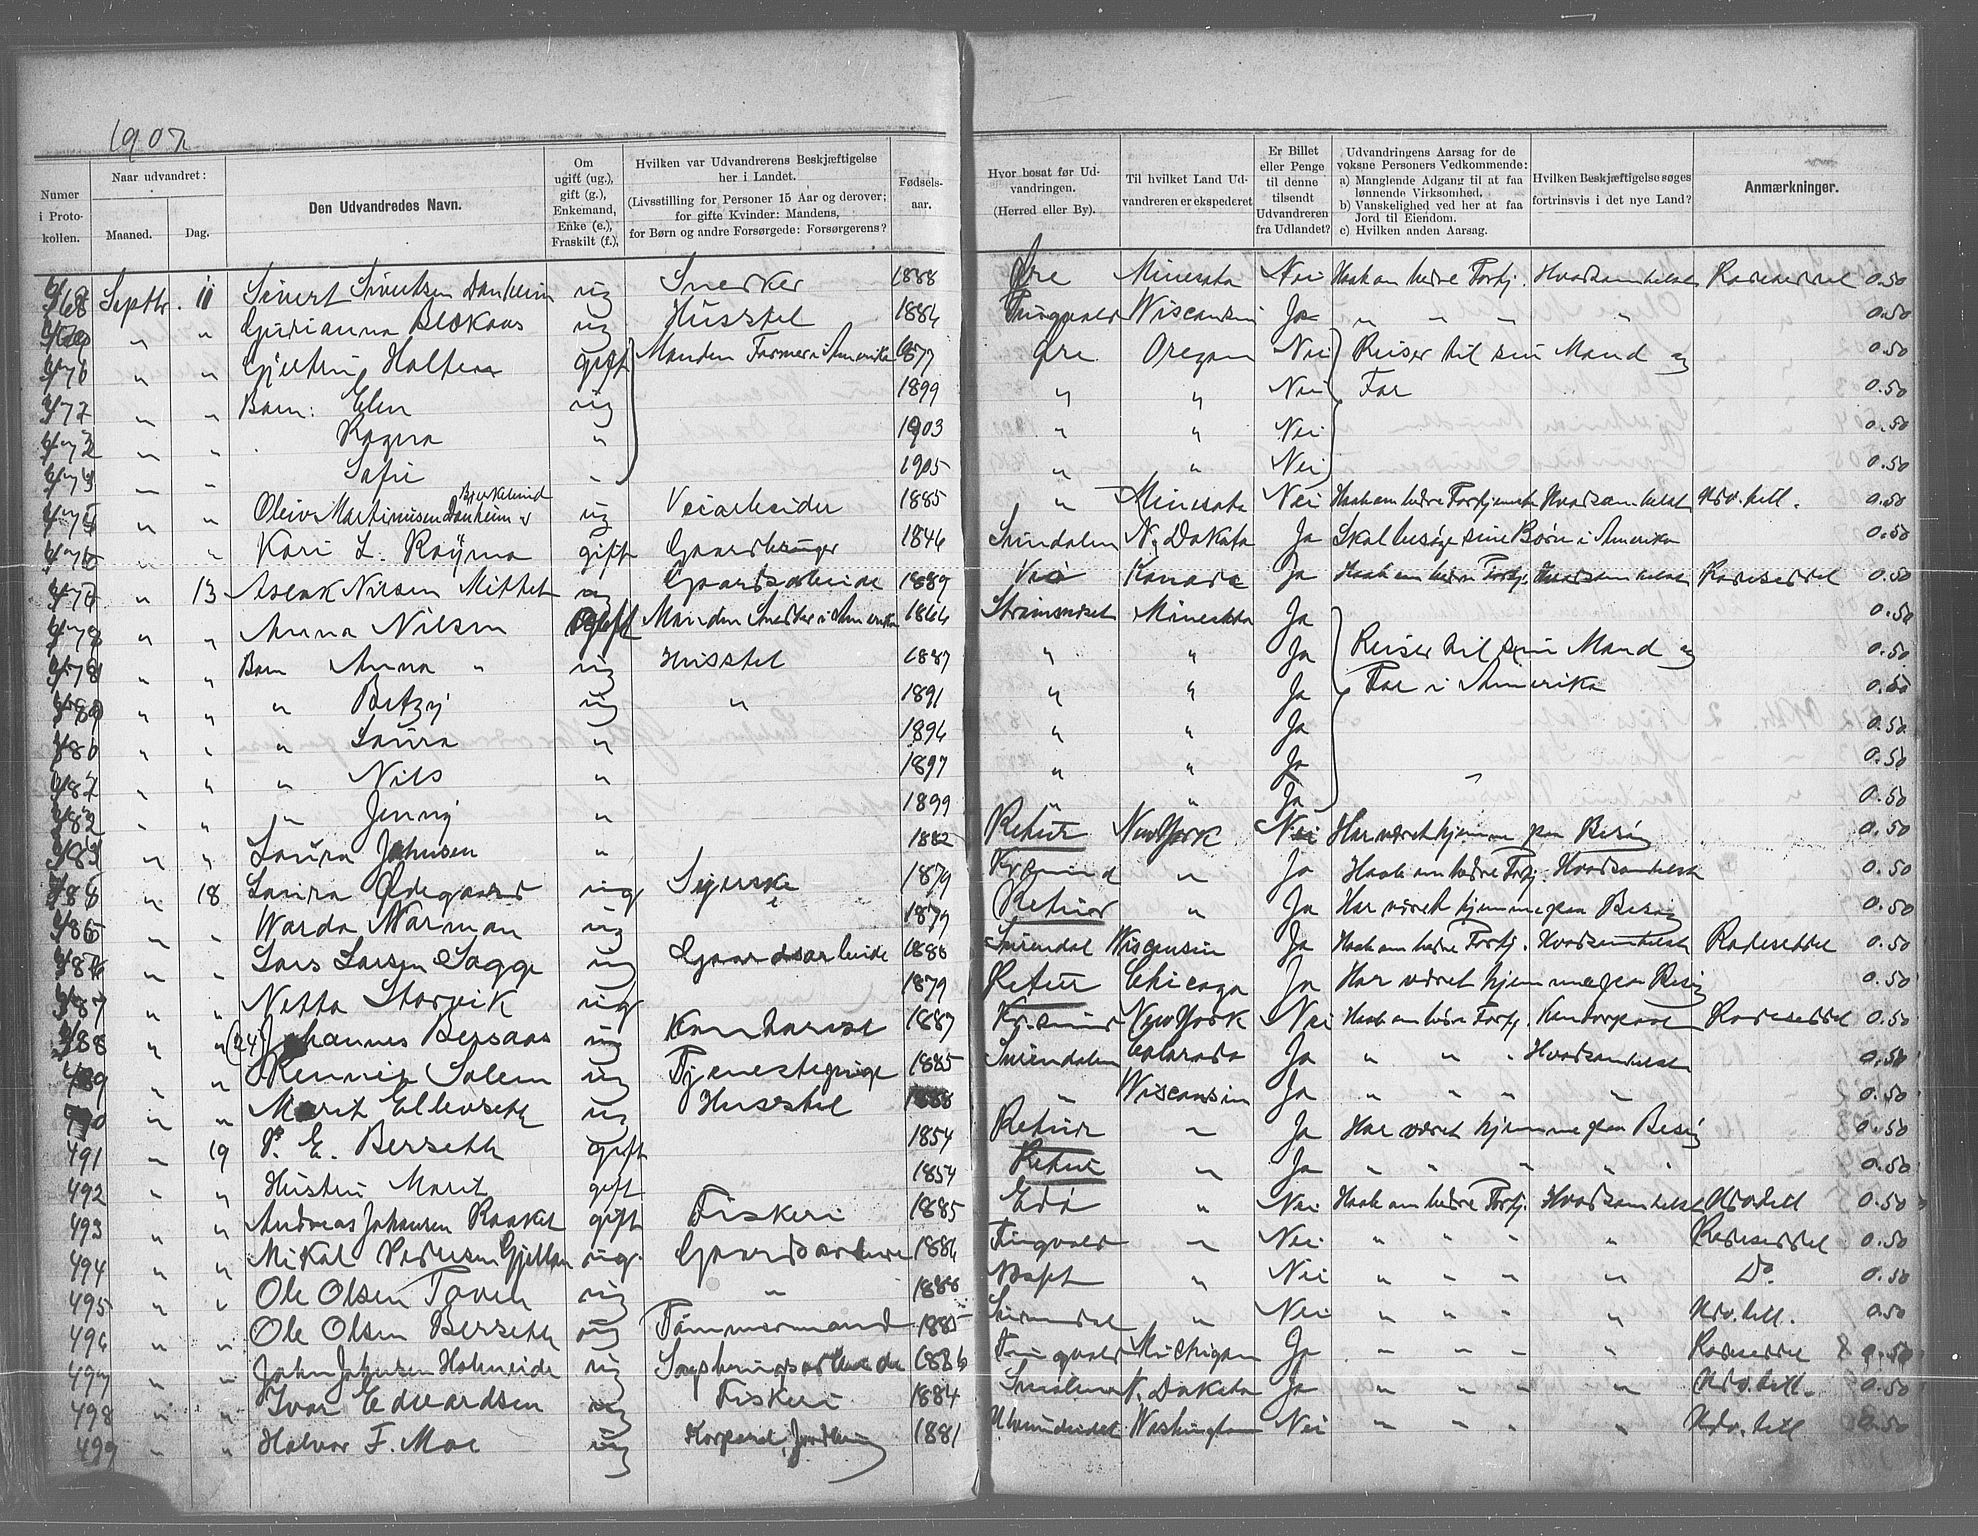 1907
Numer i Proto-kollen. | Naar udvandret: Maaned. | Dag. | Den Udvandredes Navn. | Om ugift (ug.), gift (g.), Enkemand, Enke (e.), Fraskilt (f.), | Hvilken var Udvandrerens Beskjæftigelse her i Landet. (Livsstilling for Personer 15 Aar og derover; for gifte Kvinder: Mandens, for Børn og andre Forsørgede: Forsørgerens? | Fødsels-aar. | Hvor bosat før Ud-vandringen. (Herred eller By). | Til hvilket Land Ud-vandreren er ekspederet | Er Billet eller Penge til denne tilsendt Udvandreren fra Udlandet? | Udvandringens Aarsag for de voksne Personers Vedkommende: a) Manglende Adgang til at faa lønnende Virksomhed. b) Vanskelighed ved her at faa Jord til Eiendom. c) Hvilken anden Aarsag. | Hvilken Beskjæftigelse søges fortrinsvis i det nye Land? | Anmærkninger.
468 Septbr. 11 Sivert Sivertsen ug Snedker 1888 Øre Minesota Nei Haab om bedre Fortj. Hvadsomhelst Rodeseddel 0.50
" " Gurianna ug Husstel 1886 Tingvold Wisconsin Ja " " " " 0.50
" " Gjertrug Holten gift Manden Farmer i Amerika 1877 Øre Oregon Nei Reiser til sin Mand og 0.50
" " Barn: Elen ug 1899 " " Nei Far 0.50
" " Ragna " 1903 " " Nei 0.50
" " Sofie " 1905 " " Nei 0.50
" " Oliver Martinusen ug Veiarbeider 1885 " Minesota Nei Haab om bedre Fortjeneste Hvadsomhelst Udv. till. 0.50
" " Kari L. gift Gaardbruger 1846 Surndalen N. Dakota Ja Skal besøge sine Børn i Amerika 0.50
" 13 Aslak Nilsen Mittet ug Gaardsarbeide 1889 Kanada Ja Haab om bedre Fortj. Hvadsomhelst Rodeseddel 0.50
" " Anna Nilsen gift Manden Snedker i Amerika 1866 Minesota Ja 0.50
" " Barn Anna " ug Husstel 1887 " " Ja Reiser til sin Mand og 0.50
" " " Betzy ug " 1891 " " Ja Far i Amerika 0.50
" " " Laura " 1894 " " Ja 0.50
" " " Nils " 1897 " " Ja 0.50
" " " Jenny " 1899 " " Ja 0.50
" " Laura Johnsen " 1882 Retur New York Nei Har været hjemme paa Besøg 0.50
" 18 Laura Ødegaard ug Syerske 1879 Kr.sund " Ja Haab om bedre Fortj. Hvadsomhelst 0.50
" " Warda Narman ug 1879 Retur " Ja Har været hjemme paa Besøg 0.50
" " Lars Larsen Sogge ug Gaardsarbeide 1888 Surendal Wisconsin Ja Haab om bedre Fortj. Hvadsomhelst Rodeseddel 0.50
487 " " Netta Storvik ug 1879 Retur Chicago Ja Har været hjemme paa Besøg 0.50
488 " " (24) Johannes Bersaas ug Kontorist 1887 Kr.sund New York Nei Haab om bedre Fortj. Kontorpost Rodeseddel 0.50
489 " " Solem ug Tjenestepige 1885 Surendalen Colorado Ja " " " Hvadsomhelst 0.50
490 " " Marit ug Husstel 1888 " Wisconsin Ja " " " " 0.50
491 " 19 P. E. Berseth gift 1854 Retur " Ja Har været hjemme paa Besøg 0.50
492 " " Hustru Marit gift 1854 Retur " Ja " " " " " 0.50
493 " " Andreas Johansen gift Fiskeri 1885 Edø " Nei Haab om bedre Fortj. Hvadsomhelst Udv. till 0.50
494 " " Mikal Pedersen ug. Gaardsarbeide 1886 Tingvold " Nei " " " " Rodeseddel 0.50
495 " " Ole Olsen ug " 1888 " Nei " " " " Do. 0.50
496 " " Ole Olsen Berseth ug Tømmermand 1885 Surendal " Nei " " " " Udv. till. 0.50
497 " " John Johnsen ug 1886 Tingvold Michigan Ja " " " " Rodeseddel 0.50
498 " " Ivar Edvardsen ug Fiskeri 1884 N. Dakota Ja " " " " Udv. till. 0.50
499 " " Halvor F. Moe ug Korporal, 1881 Washington Nei " " " " Udv. till 0.50